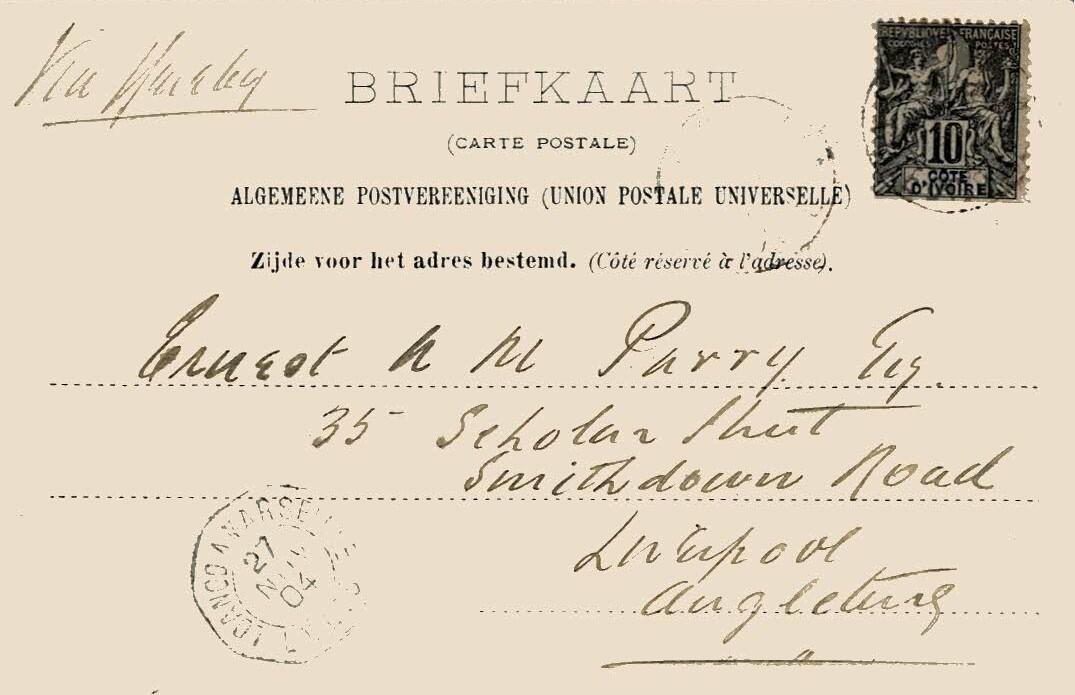 Via
BRIEFKAART
(CARTE POSTALE)
ALGEMEENE POSTVEREENIGING (UNION POSTALE UNIVERSELLE)
Zijde voor het adres bestemd. (Côté réservé à l'adresse).
REPVBLIQVE FRANÇAISE
COLONIES POSTES
10
CÔTE
D'IVOIRE
Ernest A M Parry Esq.
35 Scholar Street
Smithdown Road
Liverpool
Angleterre
MARSEILLE
27
20